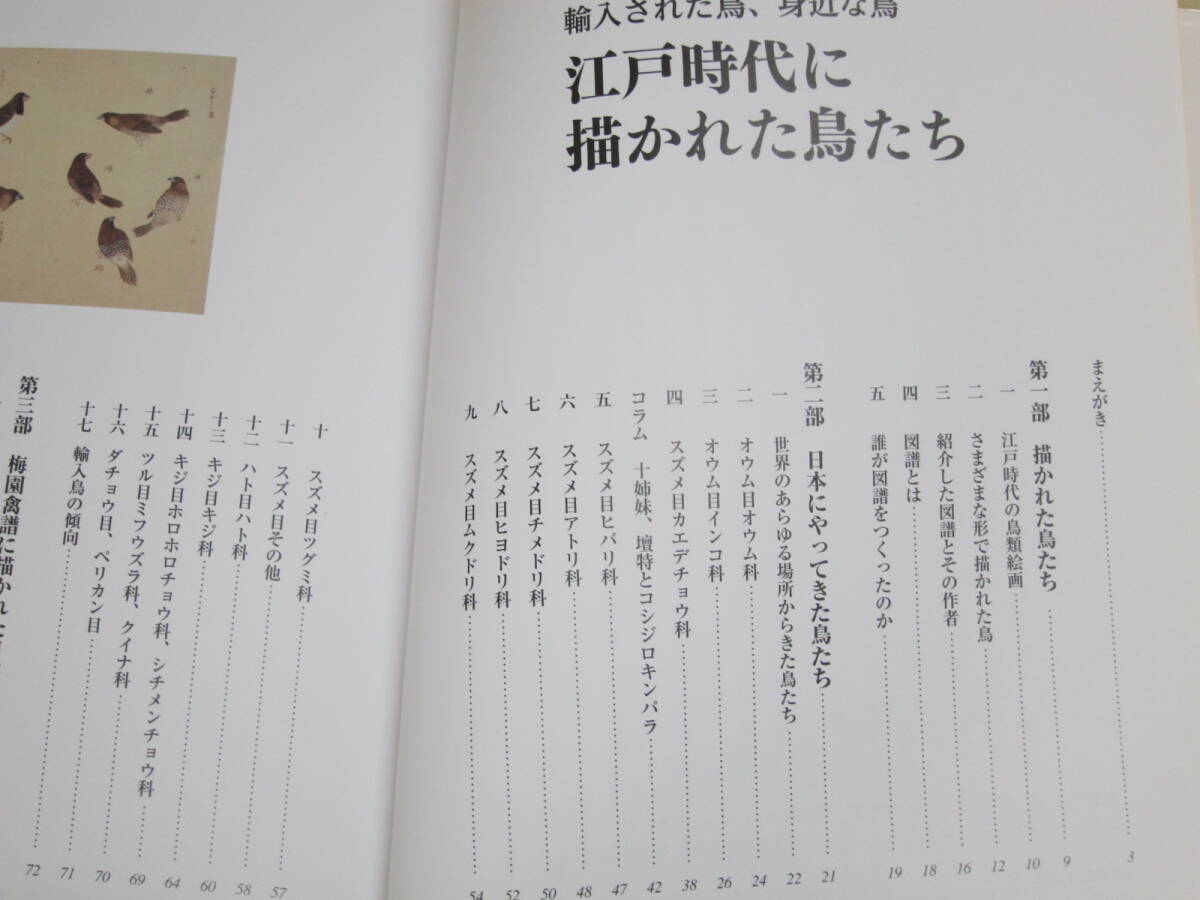 輸入された鳥、身近な鳥
江戸時代に
描かれた鳥たち
まえがき 3
第一部 描かれた鳥たち 9
一 江戸時代の鳥類絵画 10
二 さまざまな形で描かれた鳥 12
三 紹介した図譜とその作者 16
四 図譜とは 18
五 誰が図譜をつくったのか 19
第二部 日本にやってきた鳥たち 21
一 世界のあらゆる場所からきた鳥たち 22
二 オウム目オウム科 24
三 オウム目インコ科 26
四 スズメ目カエデチョウ科 38
コラム 十姉妹、壇特とコシジロキンパラ 42
五 スズメ目ヒバリ科 47
六 スズメ目アトリ科 48
七 スズメ目チメドリ科 50
八 スズメ目ヒヨドリ科 52
九 スズメ目ムクドリ科 54
十 スズメ目ツグミ科 57
十一 スズメ目その他 58
十二 ハト目ハト科 60
十三 キジ目キジ科 64
十四 キジ目ホロホロチョウ科、シチメンチョウ科 69
十五 ツル目ミフウズラ科、クイナ科 70
十六 ダチョウ目、ペリカン目 71
十七 輸入鳥の傾向 72
第三部 梅園禽譜に描かれた